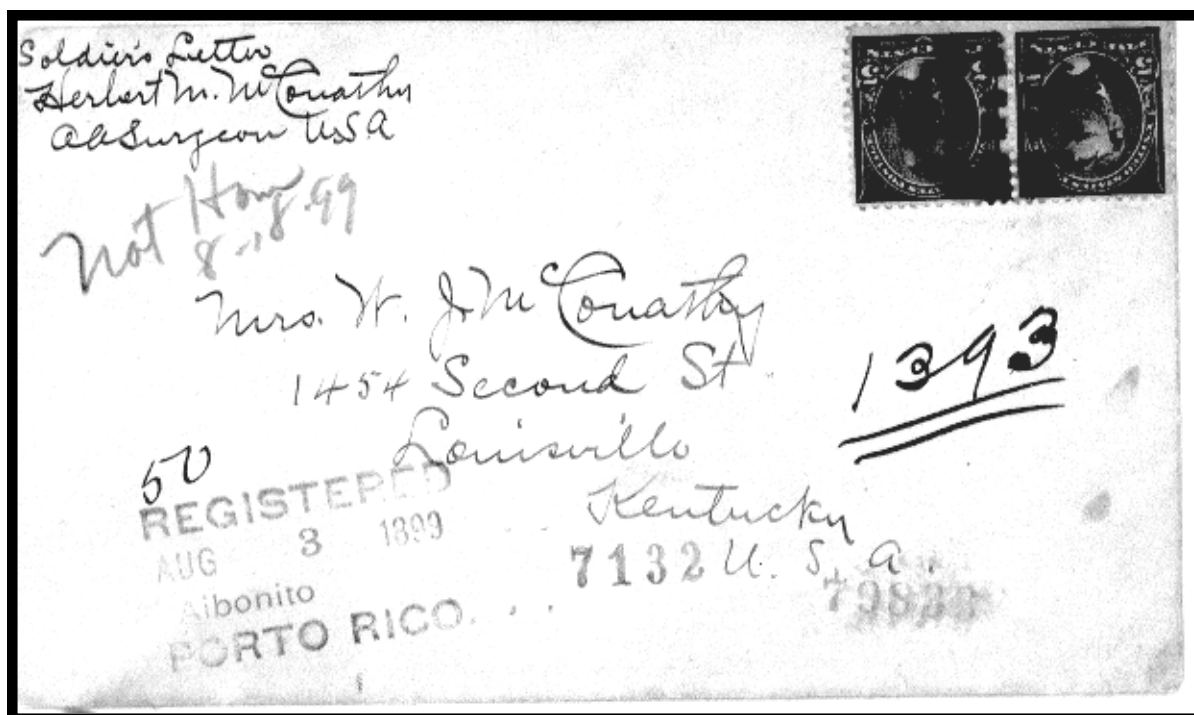 Soldier's Letter
Herbert M. McConathy
AA Surgeon USA
Not Home
8-18.99
Mrs. W. J. McConathy
1454 Second St
Louisville
Kentucky
U. S. A.
1393
50
REGISTERED
AUG 3 1899
Aibonito
PORTO RICO.
7132